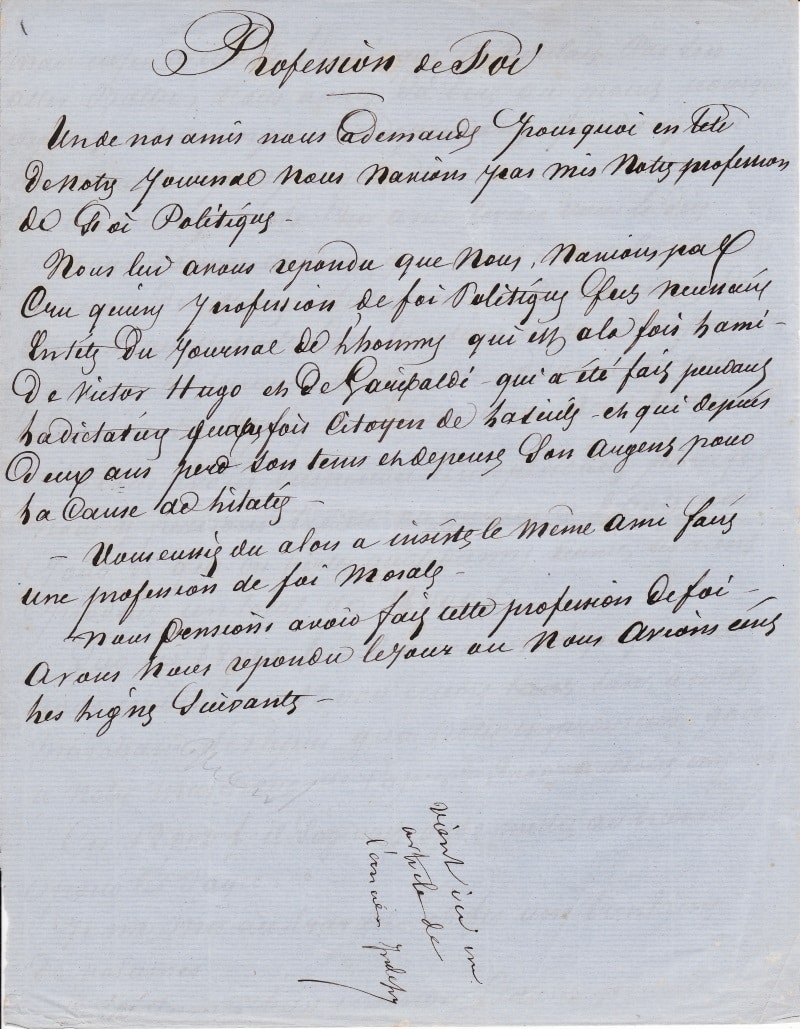 Profession de Foi
Un de nos amis nous a demandé pourquoi en Tête
De notre Journal nous n'avions pas mis Notre profession
de Foi Politique -
Nous lui avons repondu que Nous, n'avions pas
Cru qu'une profession de foi Politique fut
En tête Du Journal de l'homme qui est a la fois l'ami -
De Victor Hugo et De Garibaldi - qui a été fait pendant
la dictature quatre fois Citoyen de la Sicile - et qui depuis
Deux ans perd son tems et depense Son argent pour
La Cause de l'italie -
- Vous eussiez du alors a insisté le même ami faire
une profession de foi Morale -
Nous pensions avoir fait cette profession De foi -
Avons Nous repondu le jour ou Nous Avions écrit
Les lignes Suivantes -
vient ici un
article de
l'ancien Indep